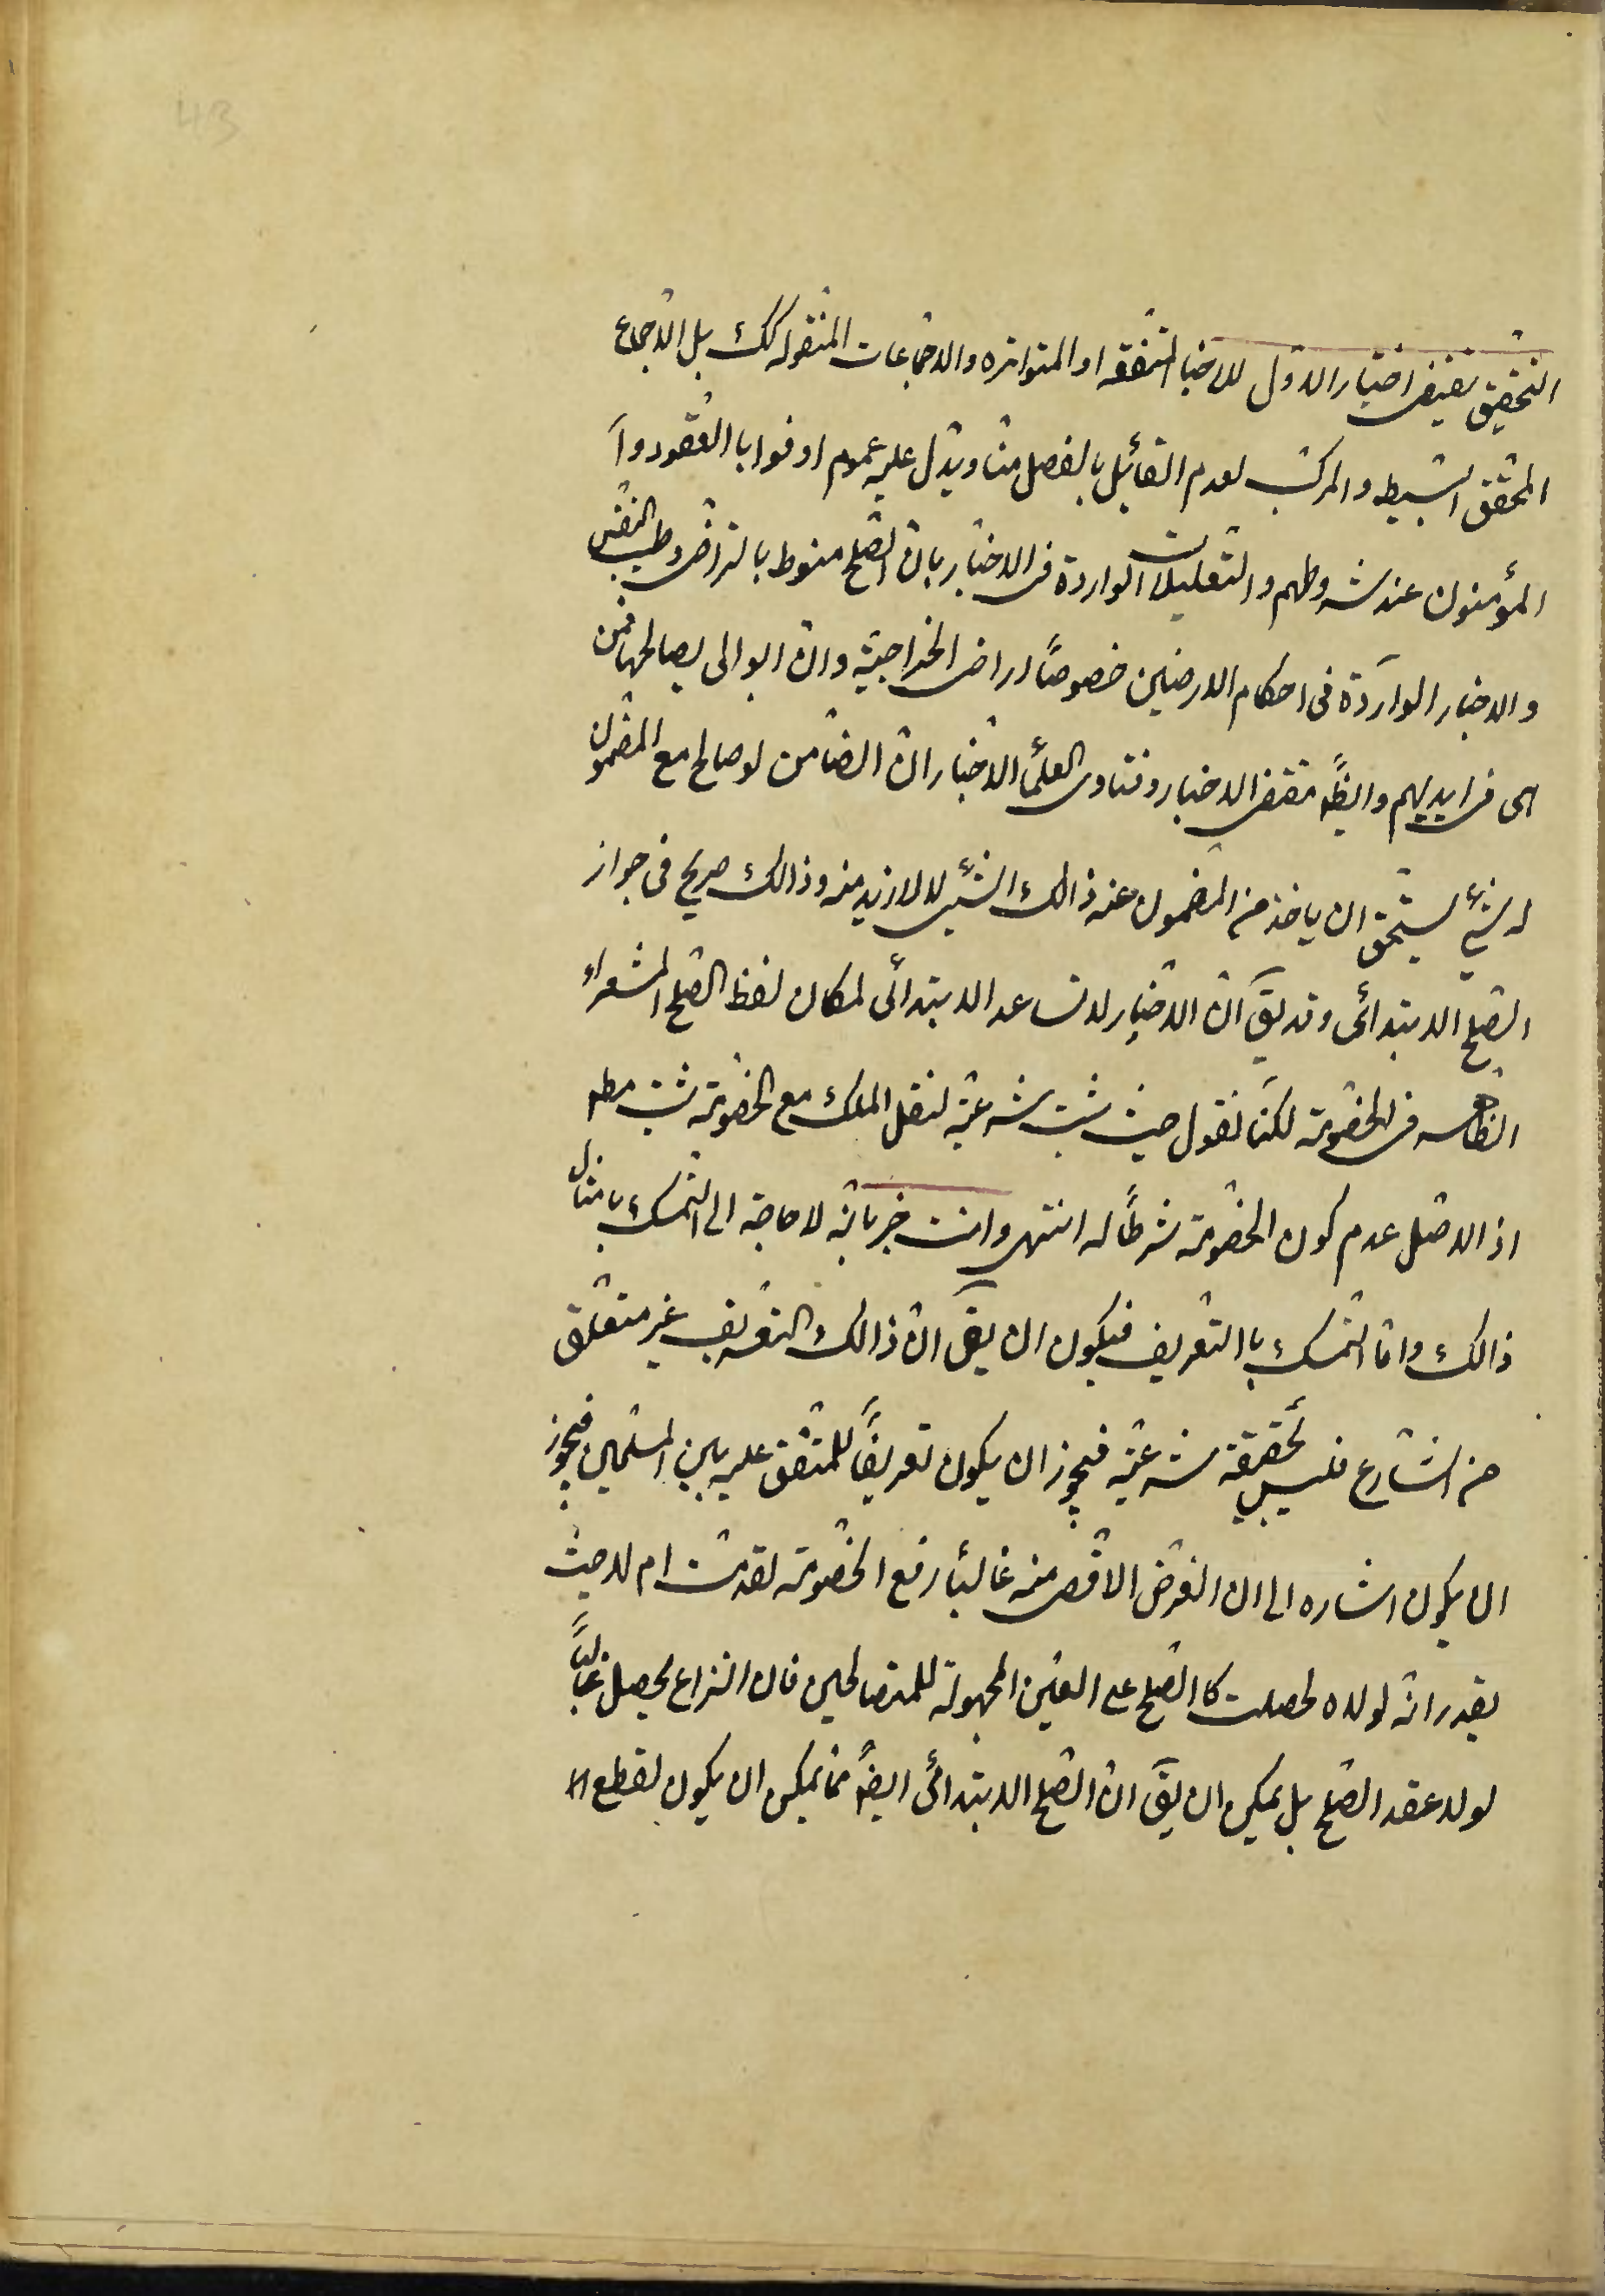 43
التحقيق يقتضى اختيار الاول للاخبار المتفقه او المتواتره والاجماعات المنقوله كك بل الاجماع
المحقق البسيط والمركب لعدم القائيل بالفصل منا ويدل عليه عموم اوفوا با العقود وآ
المؤمنون عند شروطهم والتعليلات الواردة فى الاخبار بان الصلح منوط بالتراضى وطيب النفس
والاخبار الواردة فى احكام الارضين خصوصاً اراضى الخراجية وان الوالى يصالحها فمن
هى فى ايديهم وايظًه مقتضى الاخبار وفتاوى العلمأ الاخبار ان الضامن لو صالح مع المضمون
له بشئ يستحق ان ياخذ من المضمون عنه ذالك الشئ لا الازيد منه وذالك صريح فى جواز
الصلح الابتدائى وقد يقَ ان الاخبار لا تساعد الابتدائى لمكان لفظ الصلح المشعر او
الظاهر فى الخصومة لكنا نقول حيث ثبت شرعية لنقل الملك مع الخصومة ثبت مطه
اذ الاصل عدم كون الخصومة شرطاً له انتهى وانت خبر بانه لا حاجة الى التمسك بامثال
ذالك واما التمسك باالتعريف فيكون ان يقَ ان ذالك التعريف غير متعلق
من الشارع فليس بحقيقة شرعية فيجوز ان يكون تعريفاً للمتفق عليه بين المسلمين فيجوز
ان يكون اشاره الى ان الغرض الاقصى منه غالباً رفع الخصومة تقدمت ام لا حيث
يقدر انه لولاه لحصلت كا الصلح على العين المجهولة للمتصالحين فان النزاع يحصل غالباً
لولا عقد الصلح بل يمكن ان يقَ ان الصلح الابتدائى ايضاً مما يمكن ان يكون لقطع